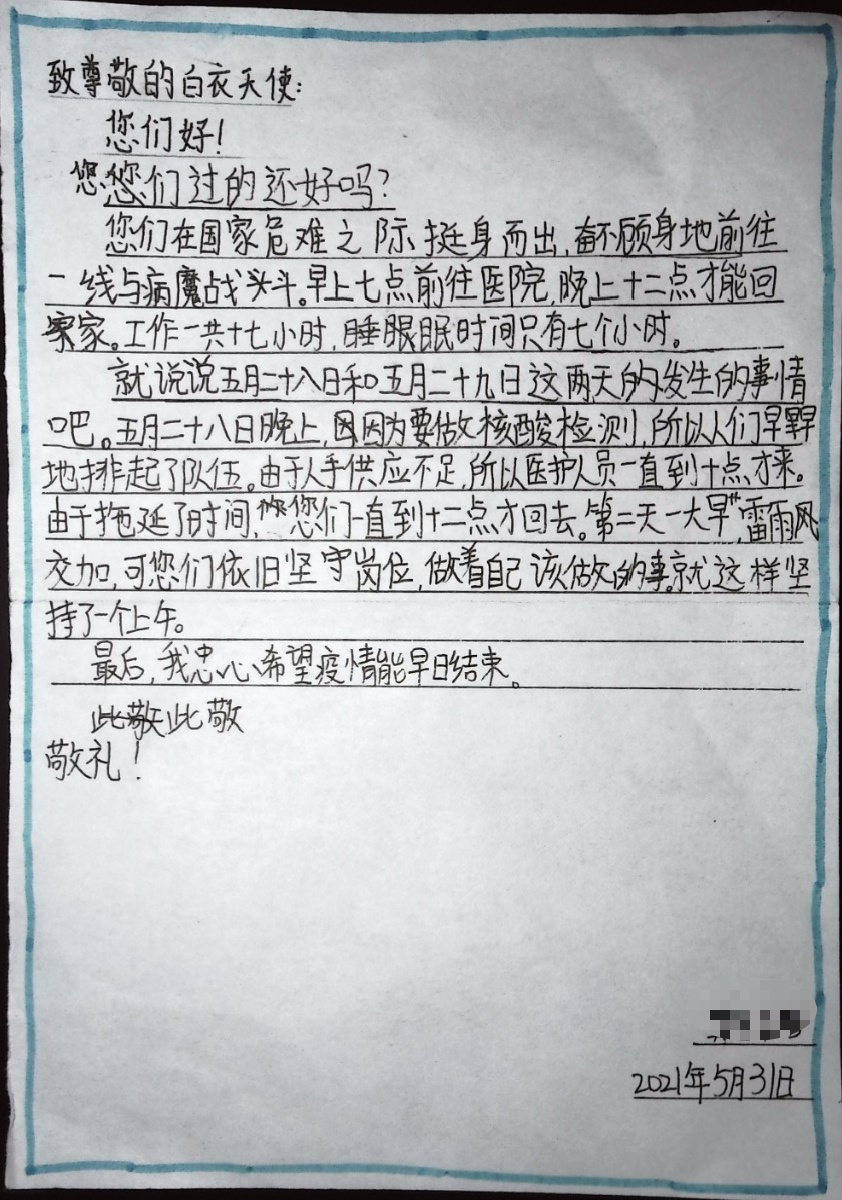 致尊敬的白衣天使:
您们好!
您您们过的还好吗?
您们在国家危难之际挺身而出,奋不顾身地前往
一线与病魔战斗。早上七点前往医院,晚上十二点才能回
家。工作一共十七小时,睡眠时间只有七个小时。
就说说五月二十八日和五月二十九日这两天的发生的事情
吧。五月二十八日晚上,因为要做核酸检测,所以人们早早
地排起了队伍。由于人手供应不足,所以医护人员一直到十点才来。
由于拖延了时间,您们一直到十二点才回去。第二天一大早,雷雨风
交加,可您们依旧坚守岗位,做着自己该做的事。就这样坚
持了一个上午。
最后,我忠心希望疫情能早日结束。
此敬此敬
敬礼!
2021年5月31日